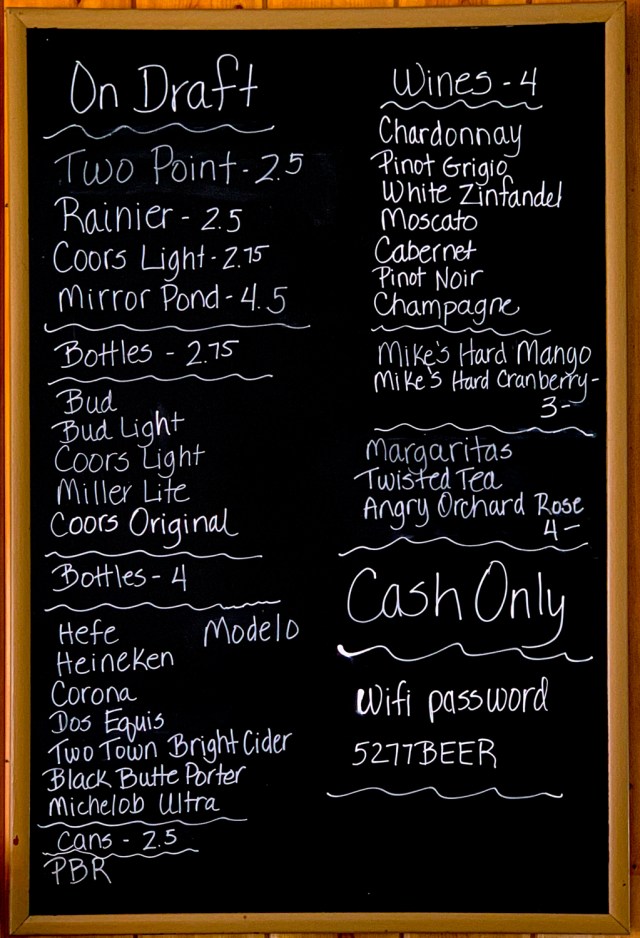 On Draft
Two Point - 2.5
Rainier - 2.5
Coors Light - 2.75
Mirror Pond - 4.5
Bottles - 2.75
Bud
Bud Light
Coors Light
Miller Lite
Coors Original
Bottles - 4
Hefe Modelo
Heineken
Corona
Dos Equis
Two Town Bright Cider
Black Butte Porter
Michelob Ultra
Cans - 2.5
PBR
Wines - 4
Chardonnay
Pinot Grigio
White Zinfandel
Moscato
Cabernet
Pinot Noir
Champagne
Mike's Hard Mango
Mike's Hard Cranberry -
3 -
Margaritas
Twisted Tea
Angry Orchard Rose
4 -
Cash Only
Wifi password
5277BEER